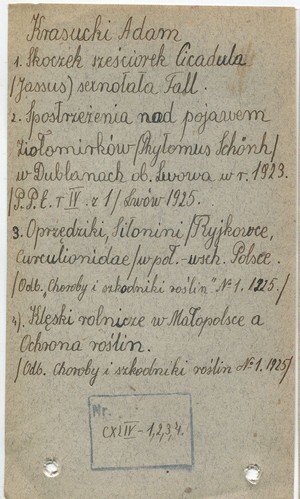 Krasucki Adam
1. Skoczek sześciorek Cicadula
/Jassus/ sexnotata Fall.
2. Spostrzeżenia nad pojawem
ziołomirków /Phytomus Schönh/
w Dublanach ob. Lwowa w r. 1923.
/P.P.E. T IV. z 1/ Lwów 1925.
3. Oprzędziki, Sitonini /Ryjkowce,
Curculionidae/ w poł.-wsch. Polsce.
/Odb. "Choroby i szkodniki roślin" No 1. 1925/
4). Klęski rolnicze w Małopolsce a
Ochrona roślin.
/Odb. Choroby i szkodniki roślin No 1. 1925/
Nr.
CXLIV - 1,2,3,4.